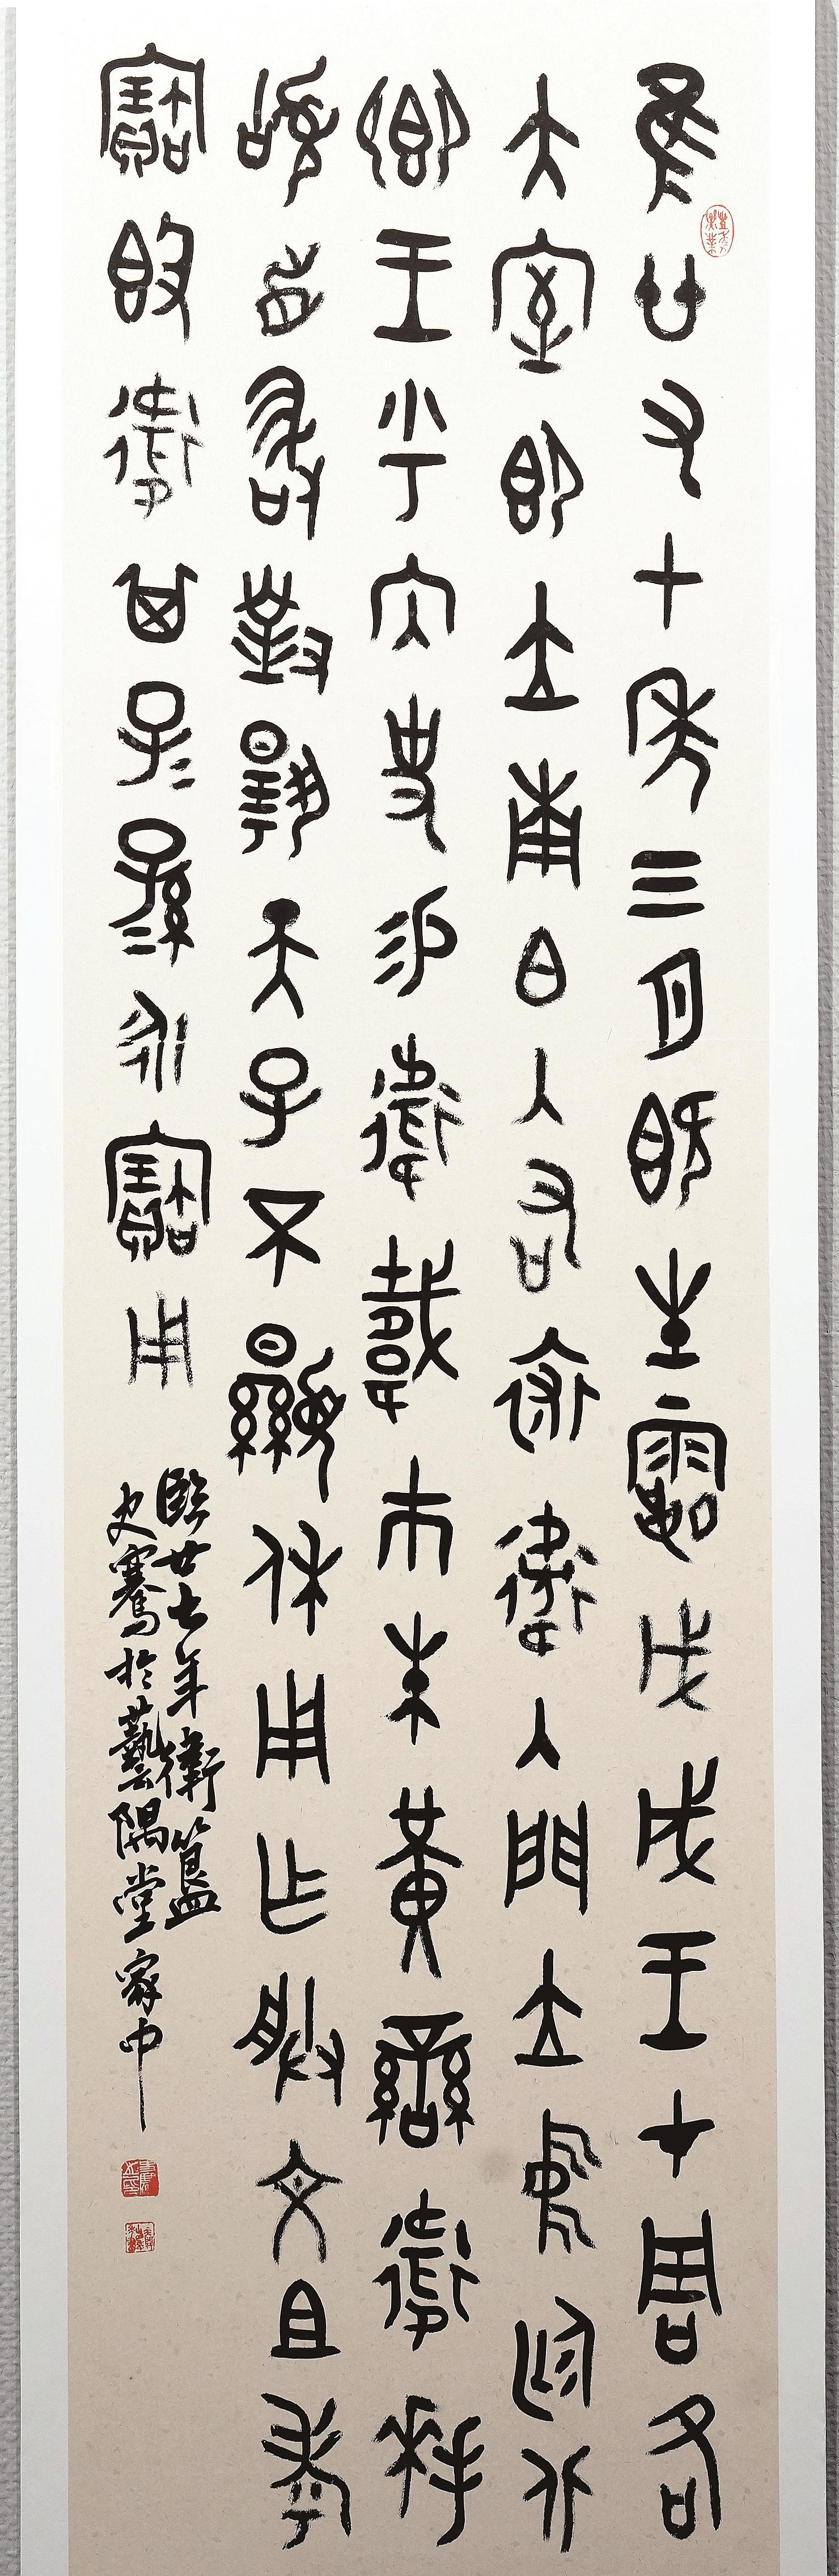 隹廿又七年三月既生霸戊戌王才周各
大室即立南白入右裘衛入門立中廷北
鄉王乎內史易衛載巿朱黃䜌衛拜
稽首敢對揚天子不顯休用乍朕文且考
寶簋衛其子〓孫〓永寶用
臨廿七年衛簋
史騫於藝隅堂家中